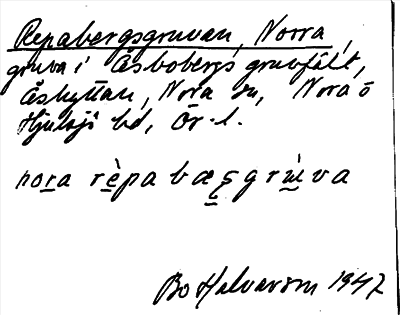 Repabergsgruvan, Norra,
gruva i Åsbobergs gruvfält,
Åshyttan, Nora sn, Nora o
Hjulsjö bd, Ör. l.
nora rèpa bæʂgrùva
Bo Halvarson 1947